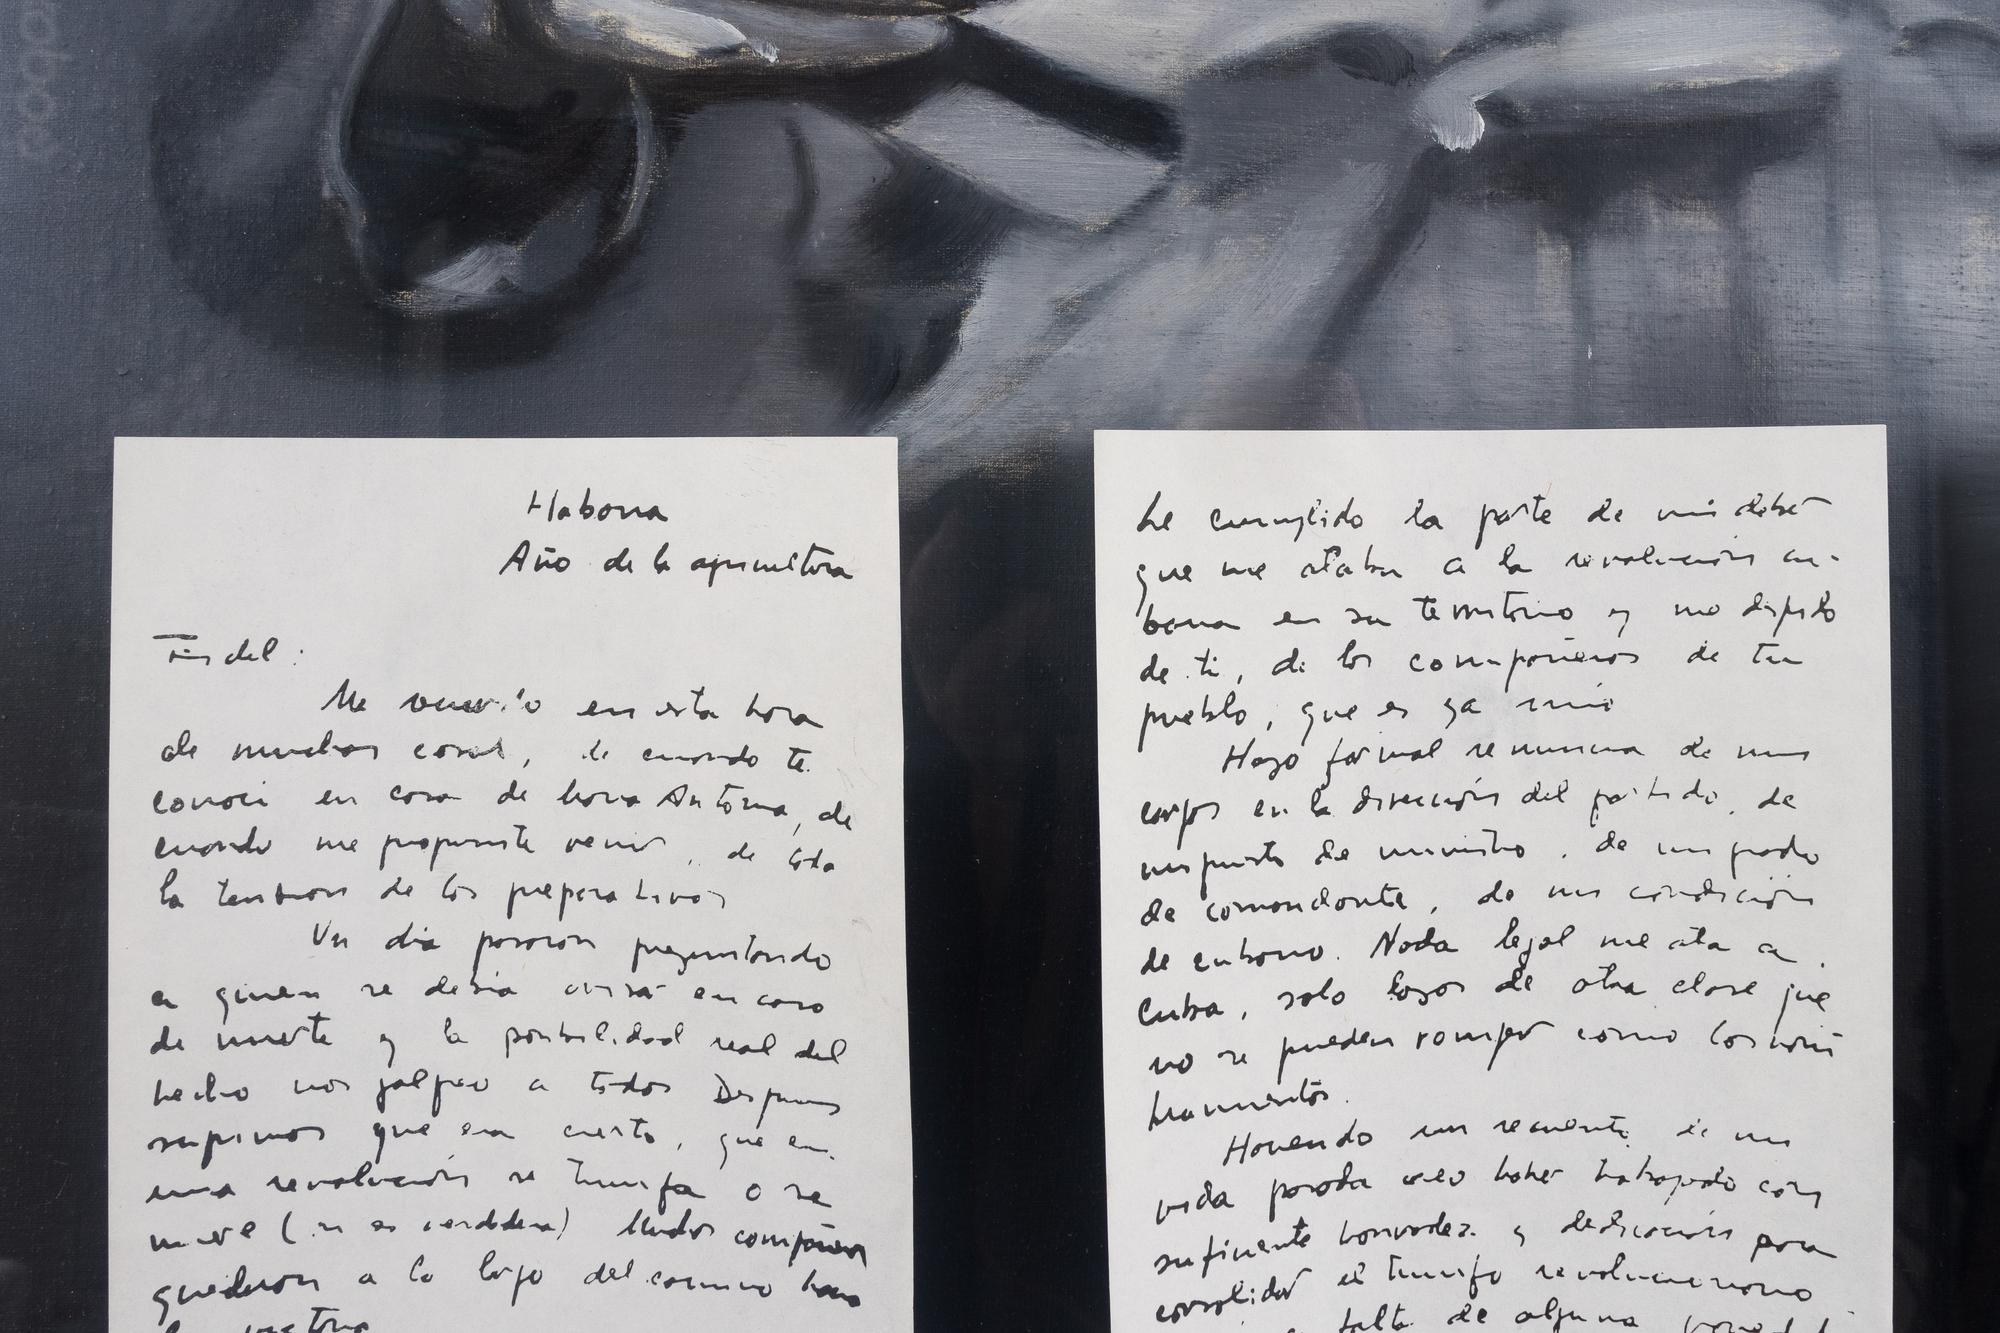 Habana
Año de la agricultura
Fidel :
Me recuerdo en esta hora
de muchas cosas, de cuando te
conocí en casa de María Antonia, de
cuando me propusiste venir, de toda
la tensión de los preparativos
Un día pasaron preguntando
a quien se debía avisar en caso
de muerte y la posibilidad real del
hecho nos golpeó a todos Después
supimos que era cierto, que en
una revolución se triunfa o se
muere (si es verdadera) Muchos compañeros
quedaron a lo largo del camino hacia
la victoria
he cumplido la parte de mi deber
que me ataba a la revolución cu-
bana en su territorio y me despido
de ti, de los compañeros de tu
pueblo, que es ya mío
Hago formal renuncia de mis
cargos en la dirección del partido, de
mi puesto de ministro, de mi grado
de comandante, de mi condición
de cubano. Nada legal me ata a
Cuba, solo lazos de otra clase que
no se pueden romper como los nom
bramientos.
Haciendo un recuento de mi
vida pasada creo haber trabajado con
suficiente honradez y dedicación para
consolidar el triunfo revolucionario
falta de alguna